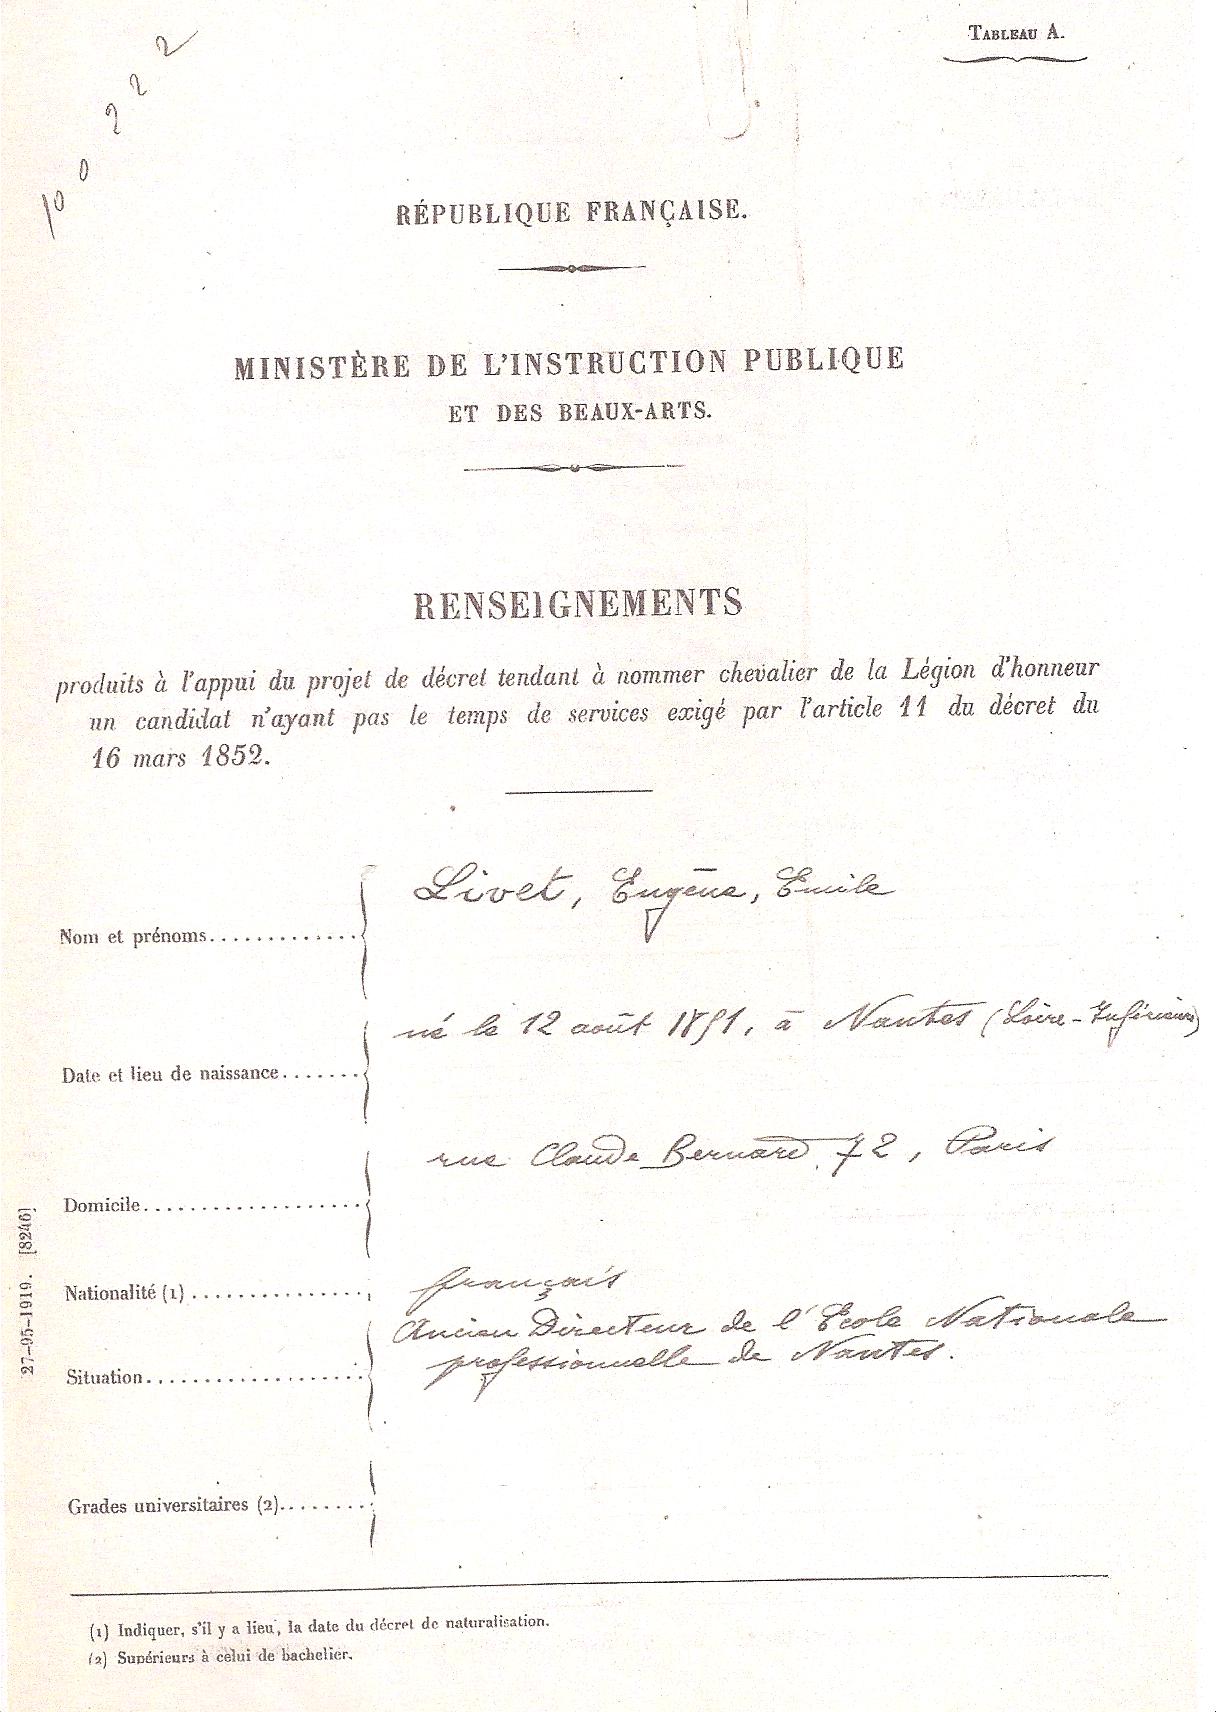 TABLEAU A.
100 222
RÉPUBLIQUE FRANÇAISE.
MINISTÈRE DE L'INSTRUCTION PUBLIQUE
ET DES BEAUX-ARTS.
RENSEIGNEMENTS
produits à l'appui du projet de décret tendant à nommer chevalier de la Légion d'honneur
un candidat n'ayant pas le temps de services exigé par l'article 11 du décret du
16 mars 1852.
Livet, Eugène, Emile
Nom et prénoms.............
né le 12 août 1851, à Nantes (Loire-Inférieure)
Date et lieu de naissance.......
rue Claude Bernard, 72, Paris
Domicile...................
Nationalité (1) ............... français
Ancien Directeur de l'Ecole Nationale
professionnelle de Nantes.
Situation...................
Grades universitaires (2)........
27-95-1919. [8246]
(1) Indiquer, s'il y a lieu, la date du décret de naturalisation.
(2) Supérieurs à celui de bachelier.